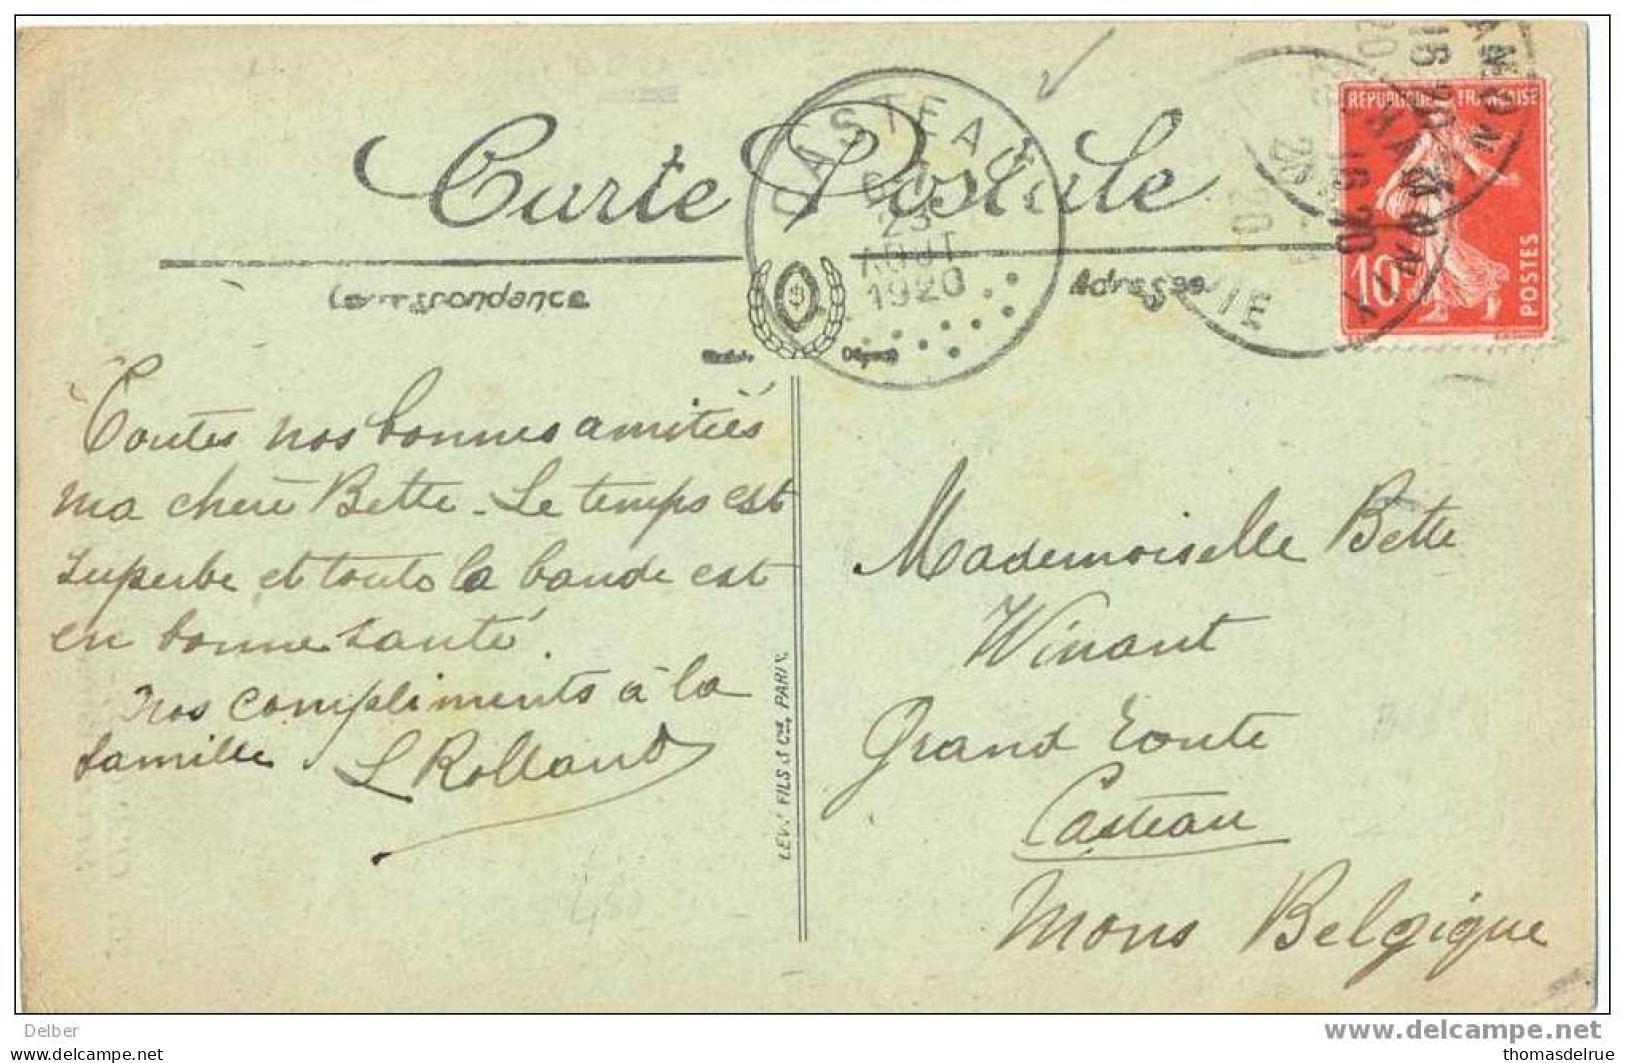 Carte Postale
Correspondance
Adresse
CASTEAU
23
AOUT
1920
REPUBLIQUE FRANÇAISE
10
POSTES
Toutes nos bonnes amitiés
ma chère Bette. Le temps est
superbe et toute la bande est
en bonne santé.
Nos compliments à la
famille. L Rolland
LEVY FILS & Cie, PARIS
Mademoiselle Bette
Winant
Grand Route
Casteau
Mons Belgique
Delber
www.delcampe.net
thomasdelrue